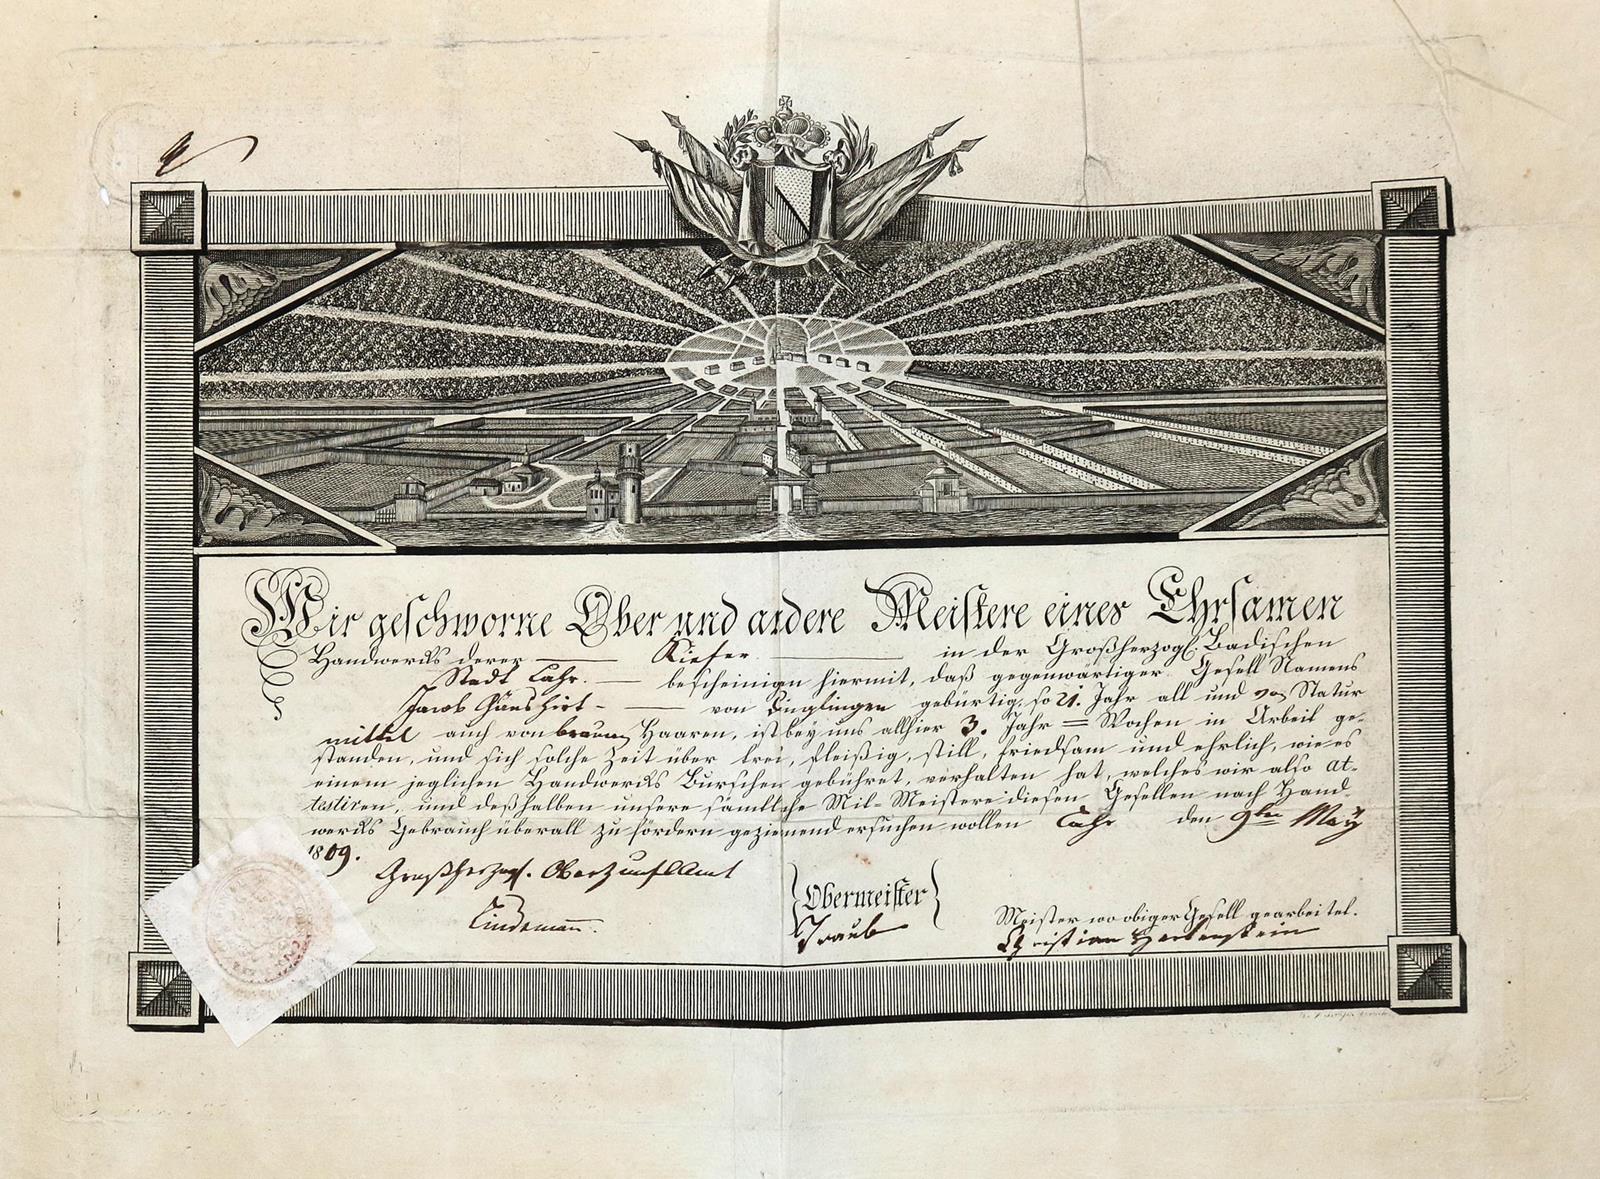 Wir geschworne Ober und andere Meistere eines Ehrsamen
Handwercks derer Kiefer in der Großherzogl. Badischen
Stadt Lahr. bescheinigen hiermit, daß gegenwärtiger Gesell Namens
Jacob Gänshirt von Dinglingen gebürtig, so 21. Jahr alt und von Statur
mittel auch von braunen Haaren, ist bey uns allhier 3. Jahr = Wochen in Arbeit ge-
standen, und sich solche Zeit über treu, fleißig, still, friedsam und ehrlich, wie es
einem jeglichen Handwercks Burschen gebühret, verhalten hat, welches wir also at-
testiren, und deßhalben unsere sämtliche Mit-Meistere diesen Gesellen nach Hand-
wercks Gebrauch überall zu fördern geziemend ersuchen wollen Lahr den 9ten May
1809.
Großherzogl. Oberzunftamt
Lindemann.
Obermeister
Traub
Meister wo obiger Gesell gearbeitet.
Christian Hertenstein